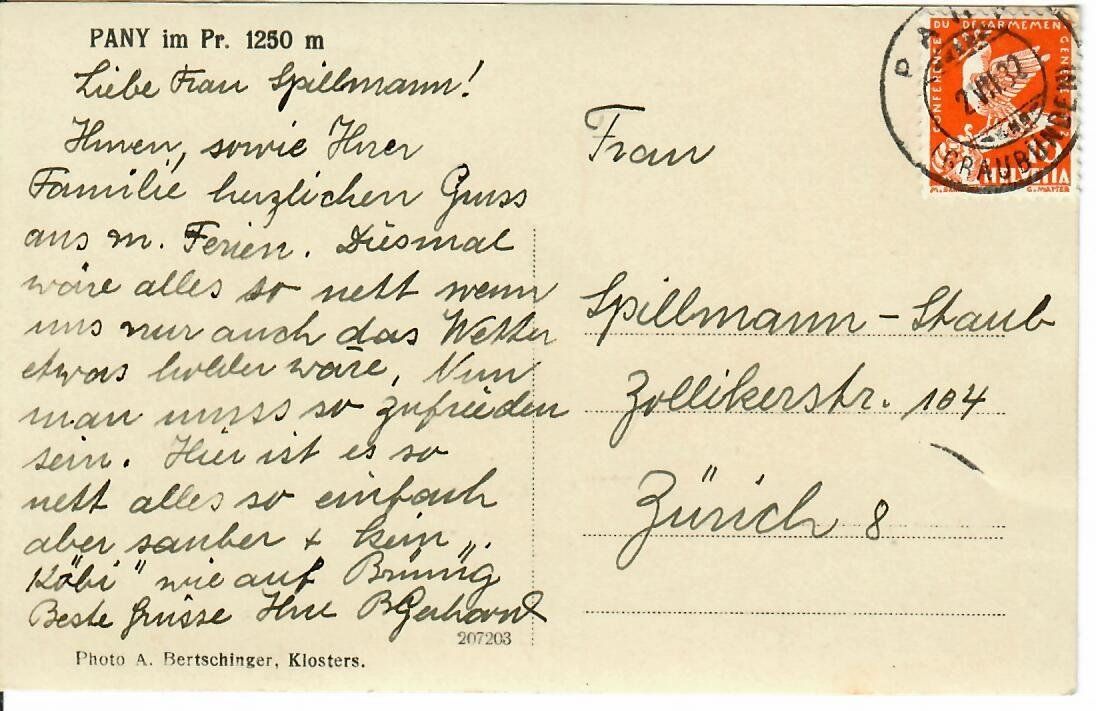 PANY im Pr. 1250 m
Liebe Frau Spillmann!
Ihnen, sowie Ihrer
Familie herzlichen Gruss
aus m. Ferien. Diesmal
wäre alles so nett wenn
uns nur auch das Wetter
etwas holder wäre, Nun
man muss so zufrieden
sein. Hier ist es so
nett alles so einfach
aber sauber + kein „
Köbi" wie auf Brünig
Beste Grüsse Ihre
207203
Photo A. Bertschinger, Klosters.
Frau
Spillmann-Staub
Zollikerstr. 104
Zürich 8
PANY
2.VII.32
GRAUBÜNDEN
CONFERENCE DU DESARMEMENT GENEVE
HELVETIA
G. MATTER